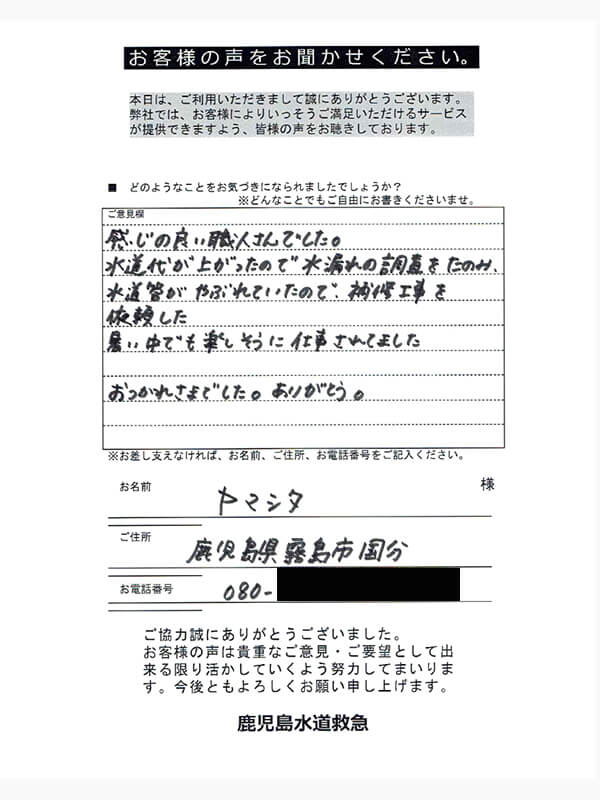 お客様の声をお聞かせください。
本日は、ご利用いただきまして誠にありがとうございます。
弊社では、お客様によりいっそうご満足いただけるサービス
が提供できますよう、皆様の声をお聴きしております。
■ どのようなことをお気づきになられましたでしょうか?
※どんなことでもご自由にお書きくださいませ。
ご意見欄
感じの良い職人さんでした。
水道代が上がったので水漏れの調査をたのみ、
水道管がやぶれていたので、補修工事を
依頼した
暑い中でも楽しそうに仕事されてました
おつかれさまでした。ありがとう。
※お差し支えなければ、お名前、ご住所、お電話番号をご記入ください。
お名前 ヤマシタ 様
ご住所 鹿児島県霧島市国分
お電話番号 080-
ご協力誠にありがとうございました。
お客様の声は貴重なご意見・ご要望として出
来る限り活かしていくよう努力してまいりま
す。今後ともよろしくお願い申し上げます。
鹿児島水道救急